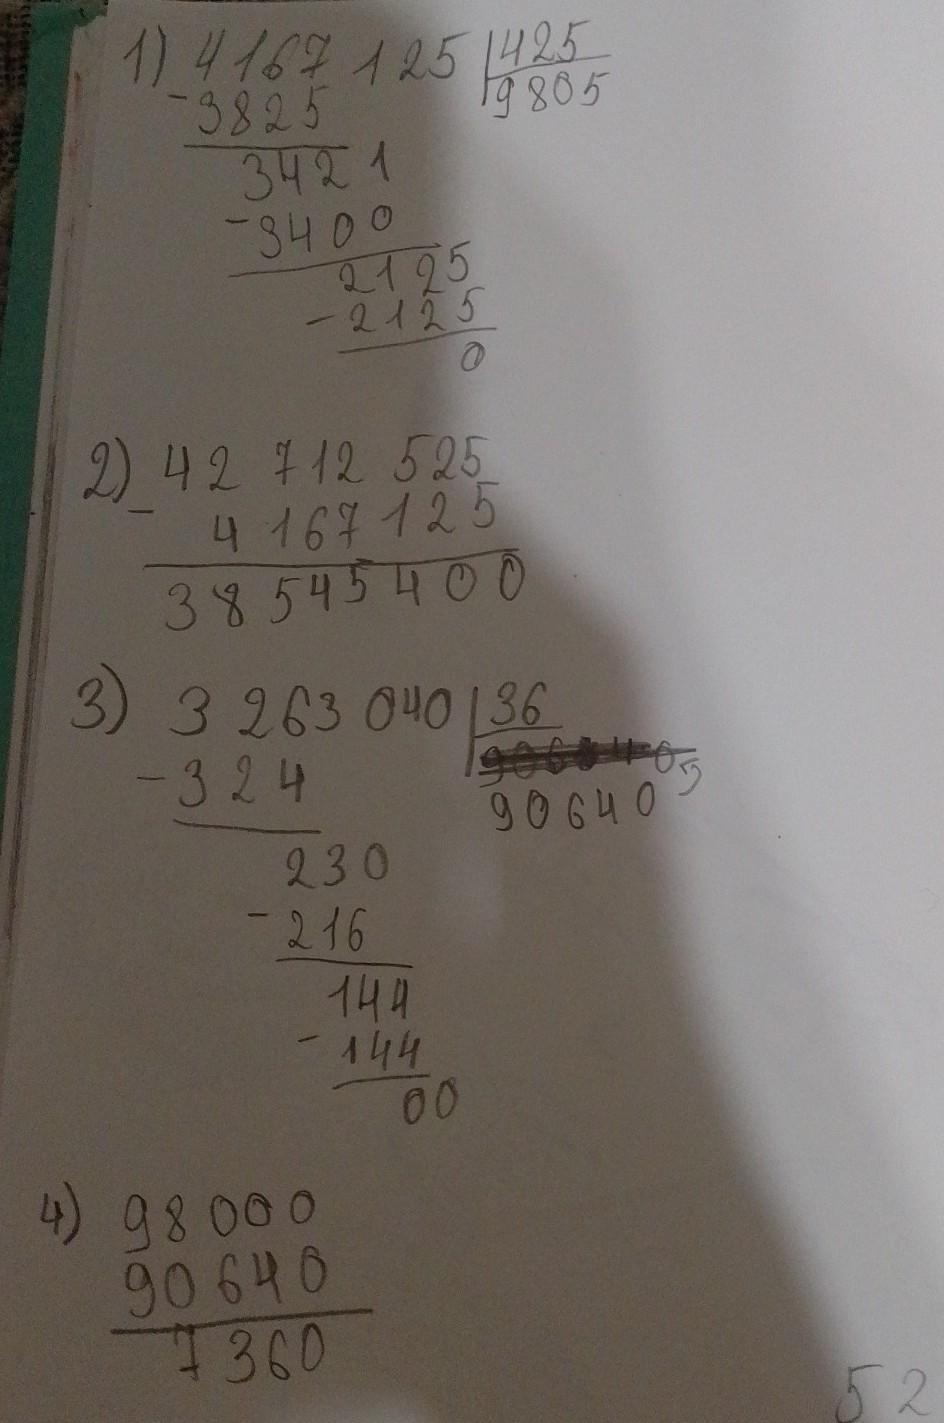 1) 4167 125 | 425
- 3825 9805
3421
- 3400
2125
- 2125
0
2) 42 712 525
- 4 167 125
38 545 400
3) 3 263 040 | 36
- 324
90640
230
- 216
144
- 144
00
4) 98 000
90 640
7360
52